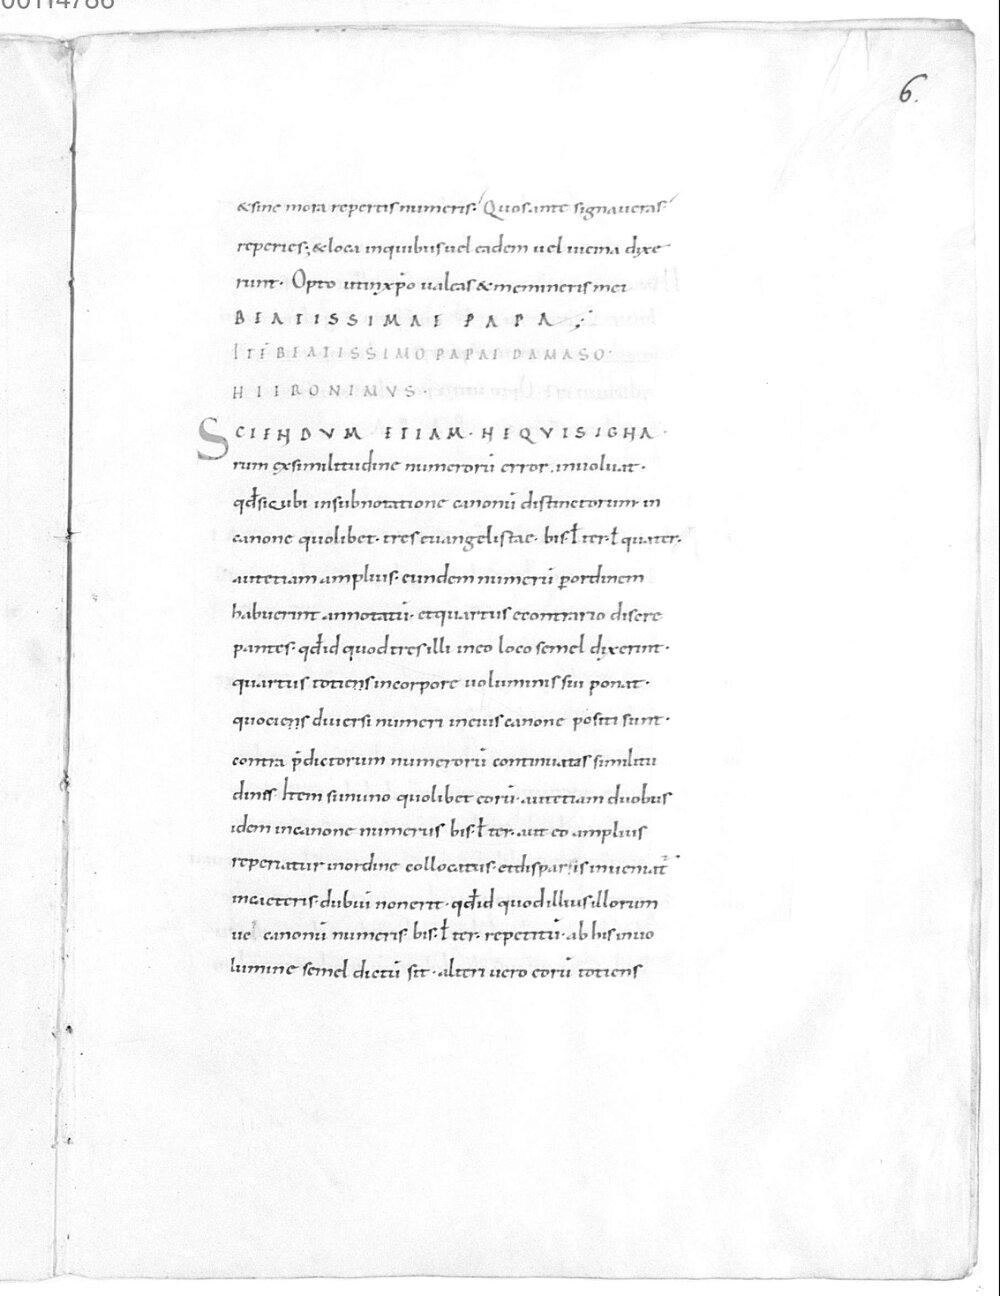 00114786
6.
& sine mora repertis numeris. Quos ante signaueras
reperies; & loca inquibus uel eadem uel uicina dixe
runt. Opto ut inxp̄o ualeas & memineris mei
BEATISSIMAE PAPA;
ITĒ BEATISSIMO PAPAE DAMASO.
HIERONIMVS.
SCIENDVM ETIAM. NEQVIS IGNA
rum exsimilitudine numerorū error inuoluat.
qđ sicubi insubnotatione canonū distinctorum in
canone quolibet. tres euangelistae. bis. ł ter. ł quater.
autetiam amplius. eundem numerū ꝑordinem
habuerint annotatū. etquartus econtrario discre
pantes. qđ id quod tres illi ineo loco semel dixerint.
quartus totiens incorpore uoluminis sui ponat.
quociens diuersi numeri ineius canone positi sunt.
contra p̄dictorum numerorū continuatas similitu
dines. Item siinuno quolibet eorū. autetiam duobus
idem incanone numerus bis. ł ter. aut eo amplius
reperiatur inordine collocatus. etdisparsis inueniat̄
incaeteris. dubiū nonerit. qđ id quod illius illorum
uel canonū numeris bis. ł ter. repetitū. ab his inuo
lumine semel dictū sit. alteri uero eorū totiens